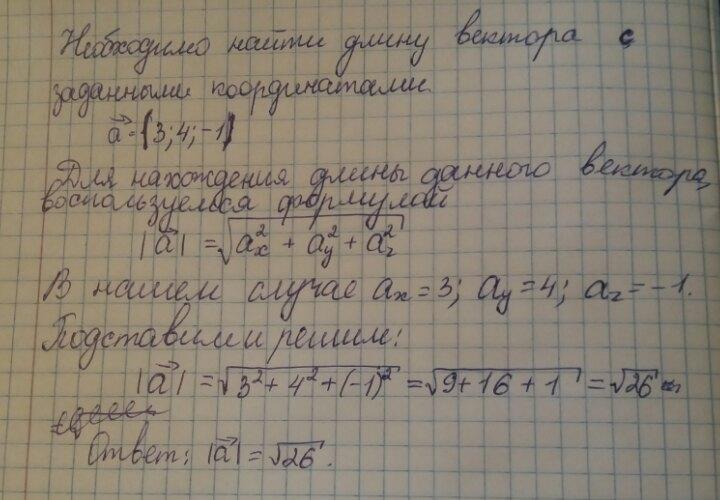 Необходимо найти длину вектора с
заданными координатами.
a⃗ = {3; 4; -1}
Для нахождения длины данного вектора,
воспользуемся формулой
|a⃗| = √(aₓ² + a_y² + a_z²)
В нашем случае aₓ = 3; a_y = 4; a_z = -1.
Подставим и решим:
|a⃗| = √(3² + 4² + (-1)²) = √(9 + 16 + 1) = √26
Ответ: |a⃗| = √26.